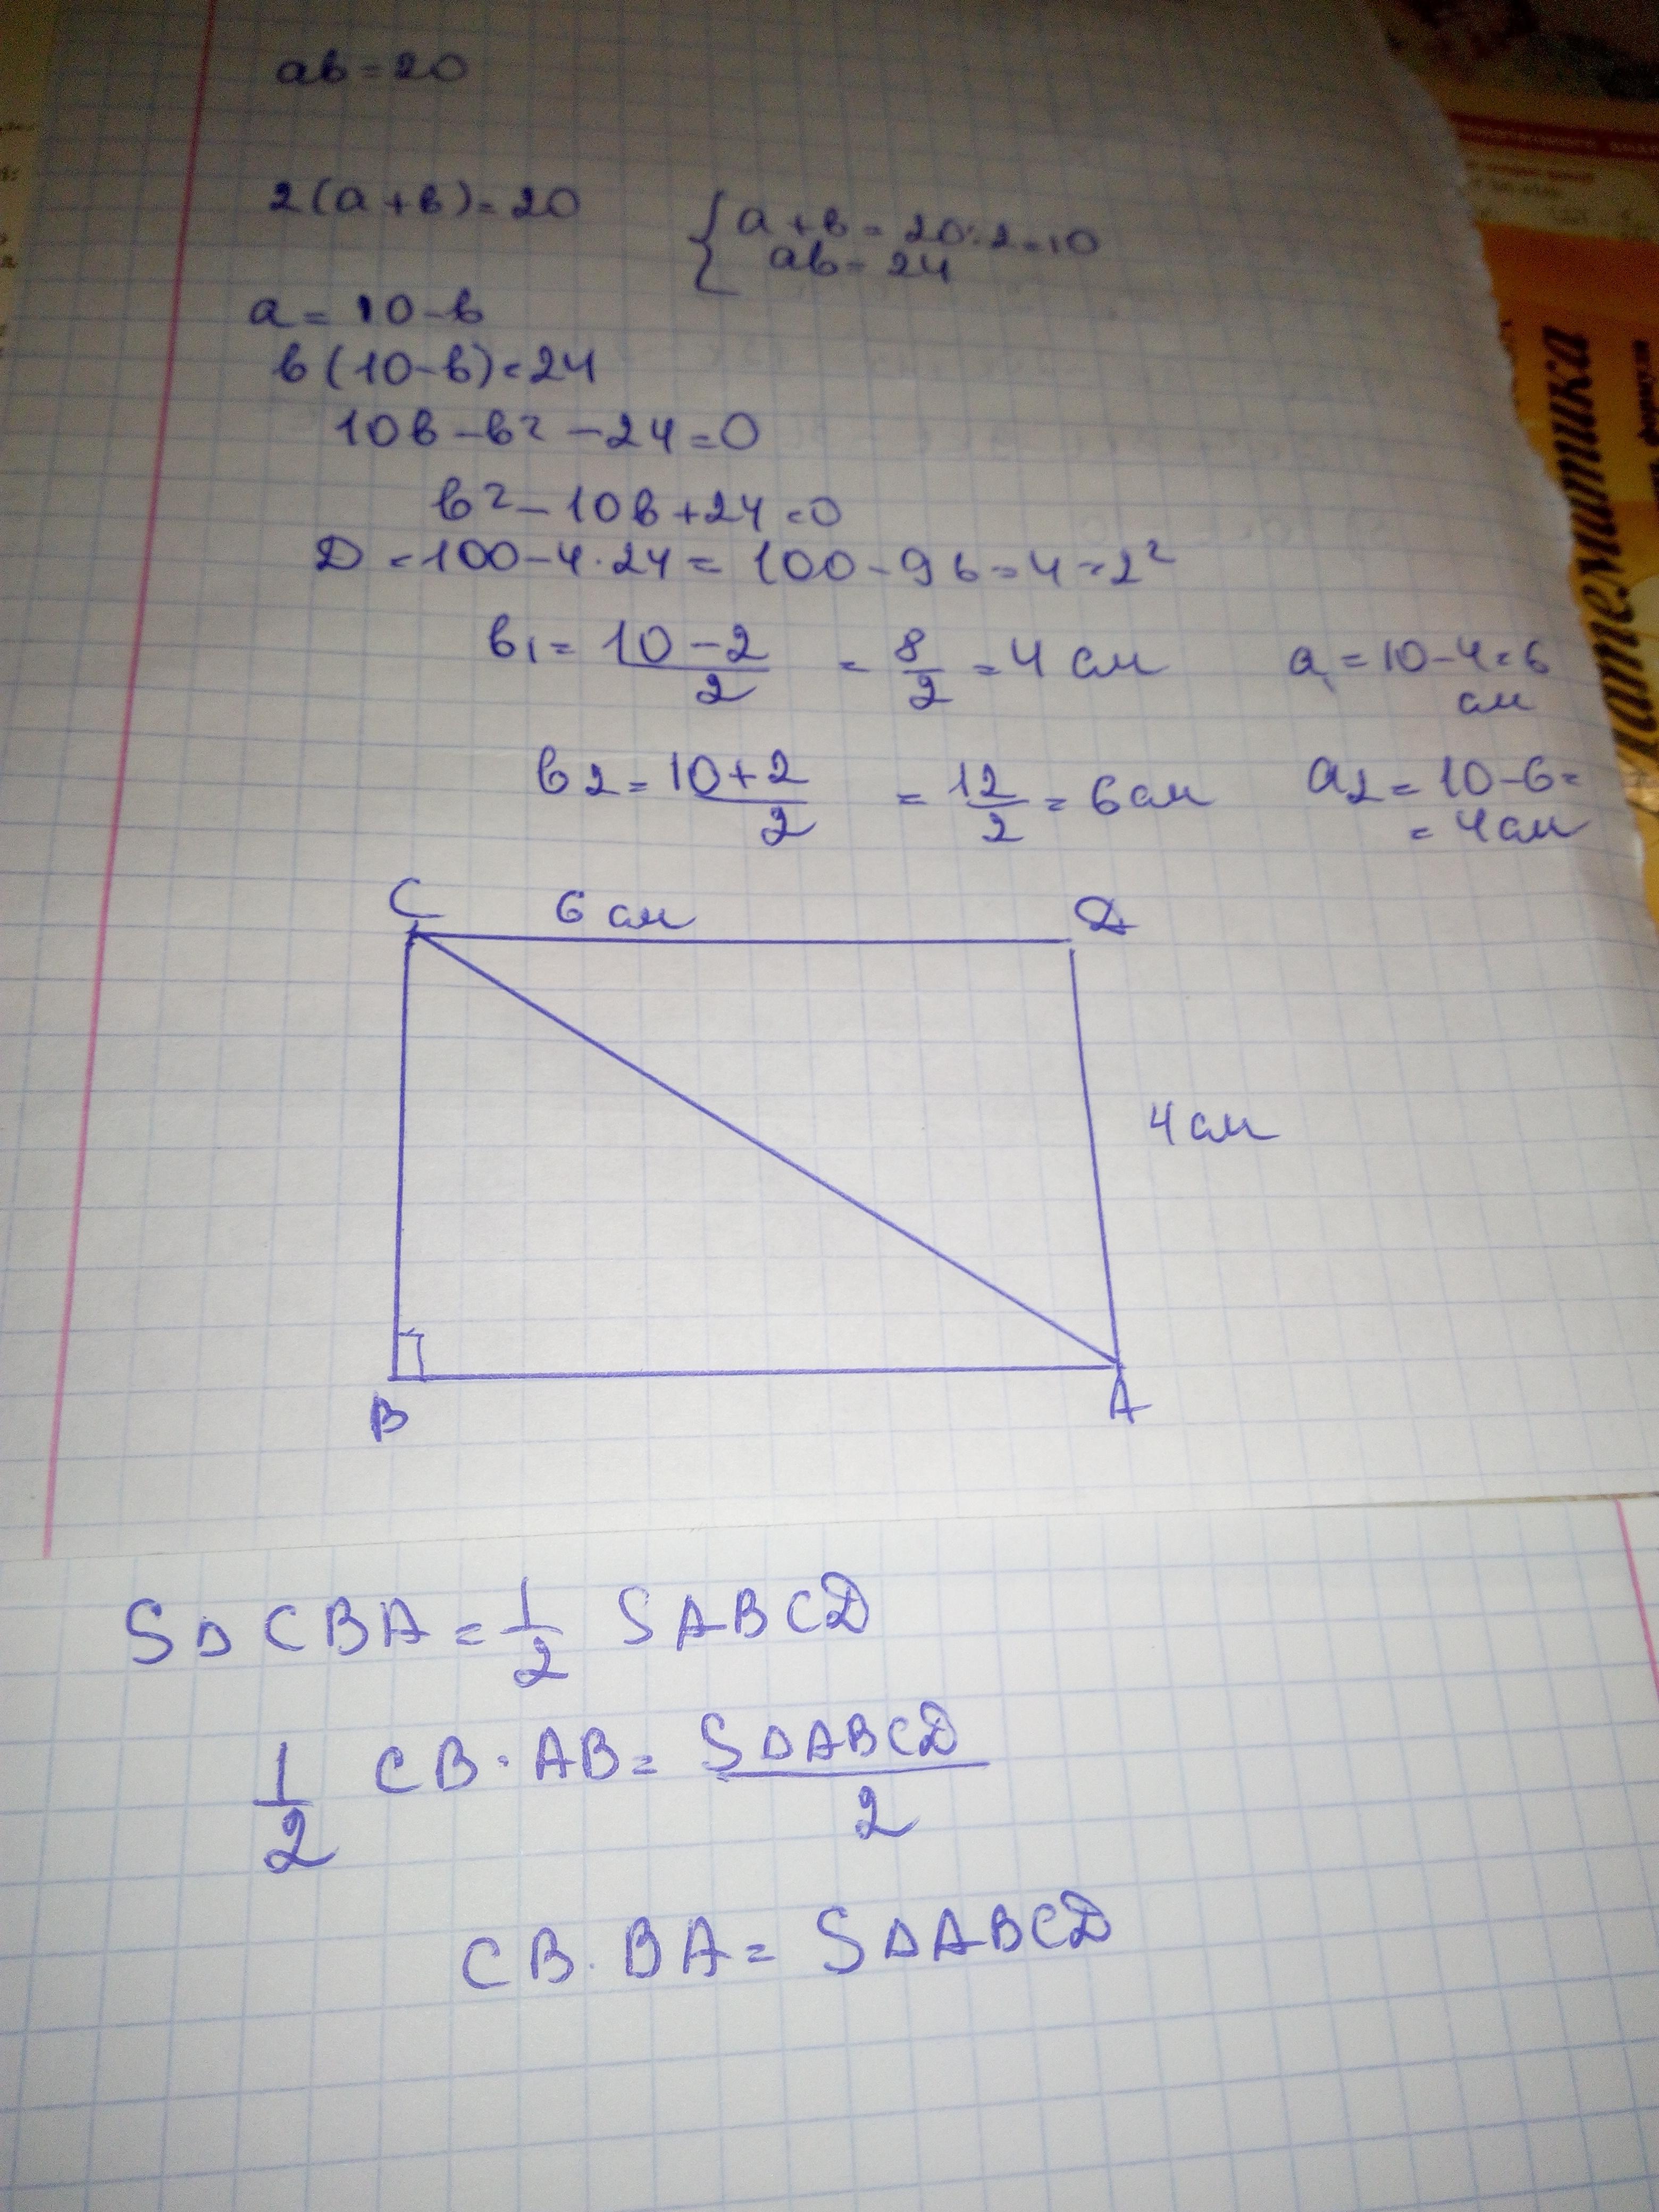 ab = 20
2(a+b) = 20
{a+b = 20:2=10
ab = 24
a = 10-b
b(10-b)=24
10b-b²-24=0
b²-10b+24=0
D=100-4·24=100-96=4=2²
b₁ = (10-2)/2 = 8/2 = 4 см
a₁ = 10-4=6 см
b₂ = (10+2)/2 = 12/2 = 6 см
a₂ = 10-6=
= 4 см
C 6 см D
4 см
B A
S△CBA = 1/2 SABCD
1/2 CB·AB = S△ABCD/2
CB·BA = S△ABCD
математика
формула